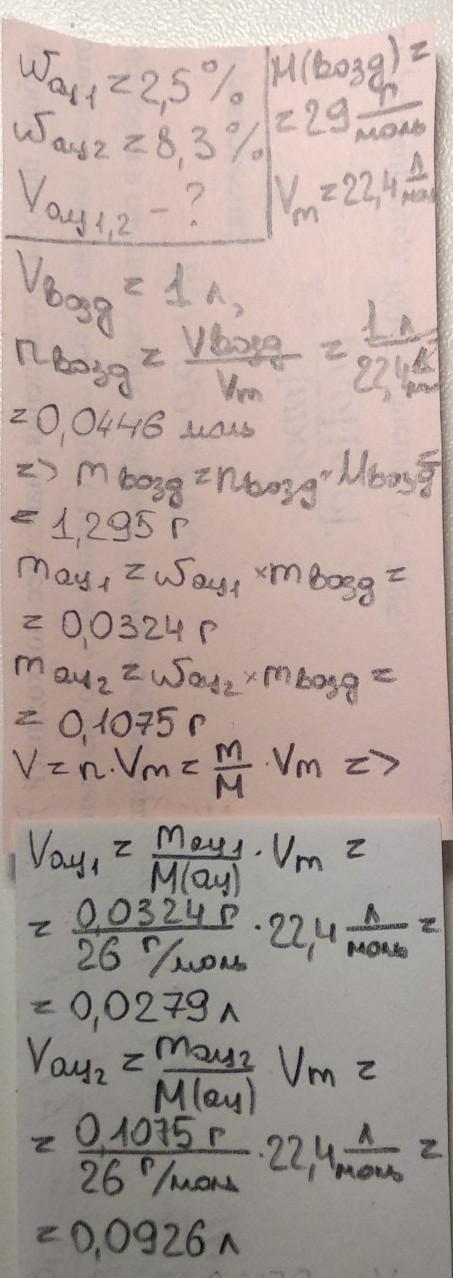 Wац1 = 2,5 %
Wац2 = 8,3 %
Vац1,2 - ?
M(возд) =
= 29 г/моль
Vm = 22,4 л/моль
Vвозд = 1 л,
nвозд = Vвозд/Vm = 1 л/22,4 л/моль
= 0,0446 моль
=> mвозд = nвозд · Mвозд =
= 1,295 г
mац1 = Wац1 × mвозд =
= 0,0324 г
mац2 = Wац2 × mвозд =
= 0,1075 г
V = n · Vm = m/M · Vm =>
Vац1 = mац1/M(ац) · Vm =
= 0,0324 г/26 г/моль · 22,4 л/моль =
= 0,0279 л
Vац2 = mац2/M(ац) Vm =
= 0,1075 г/26 г/моль · 22,4 л/моль =
= 0,0926 л